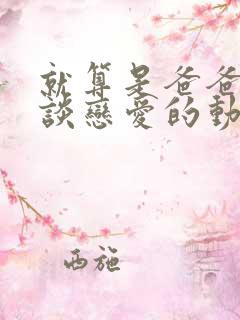 就算是爸爸
談戀愛的動
西施